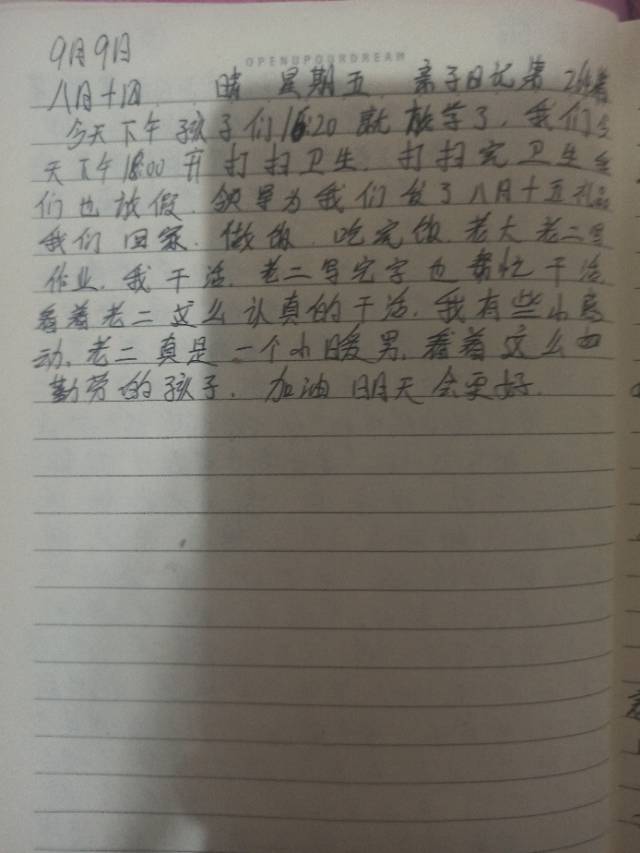 9月9日
OPENUPOURDREAM
八月十四 晴 星期五 亲子日记第
今天下午孩子们16:20就放学了,我们今
天下午18:00开打扫卫生.打扫完卫生
们也放假.领导为我们发了八月十五礼品
我们回家.做饭.吃完饭.老大老二写
作业.我干活.老二写完字也帮忙干活.
看着老二这么认真的干活.我有些小感
动.老二真是一个小暖男.看着这么
勤劳的孩子.加油明天会更好.